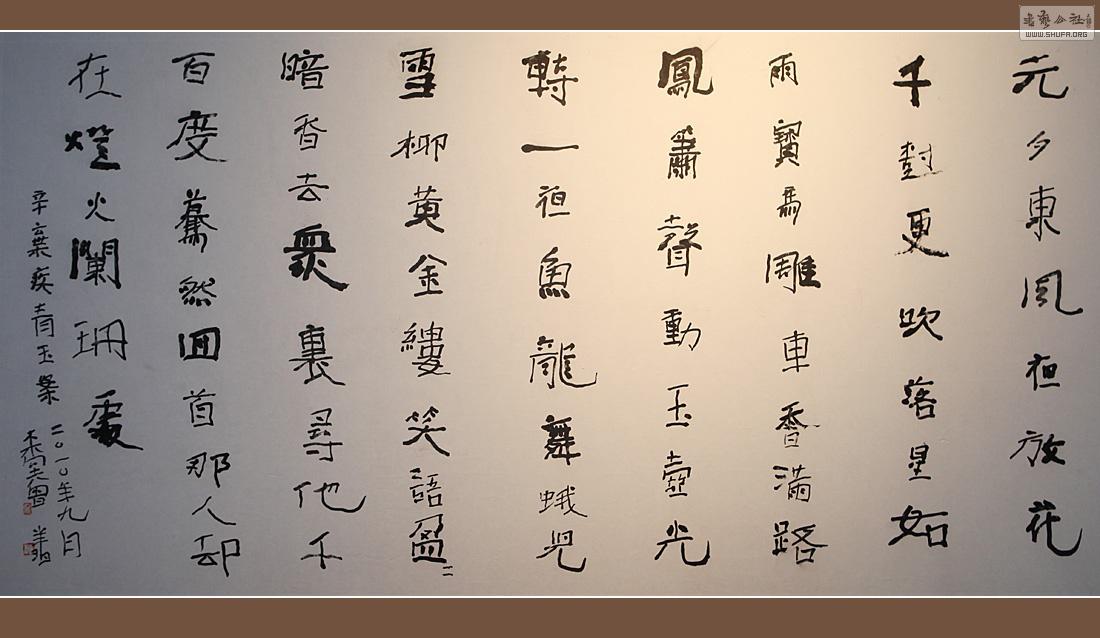 元夕東風夜放花
千對更吹落星如
雨寳馬雕車香滿路
鳳蕭聲動玉壺光
轉一夜魚龍舞蛾兒
雪柳黃金縷笑語盈二
暗香去衆裏尋他千
百度驀然回首那人却
在燈火闌珊處
辛棄疾青玉案
二〇一〇年九月
書藝公社
WWW.SHUFA.ORG